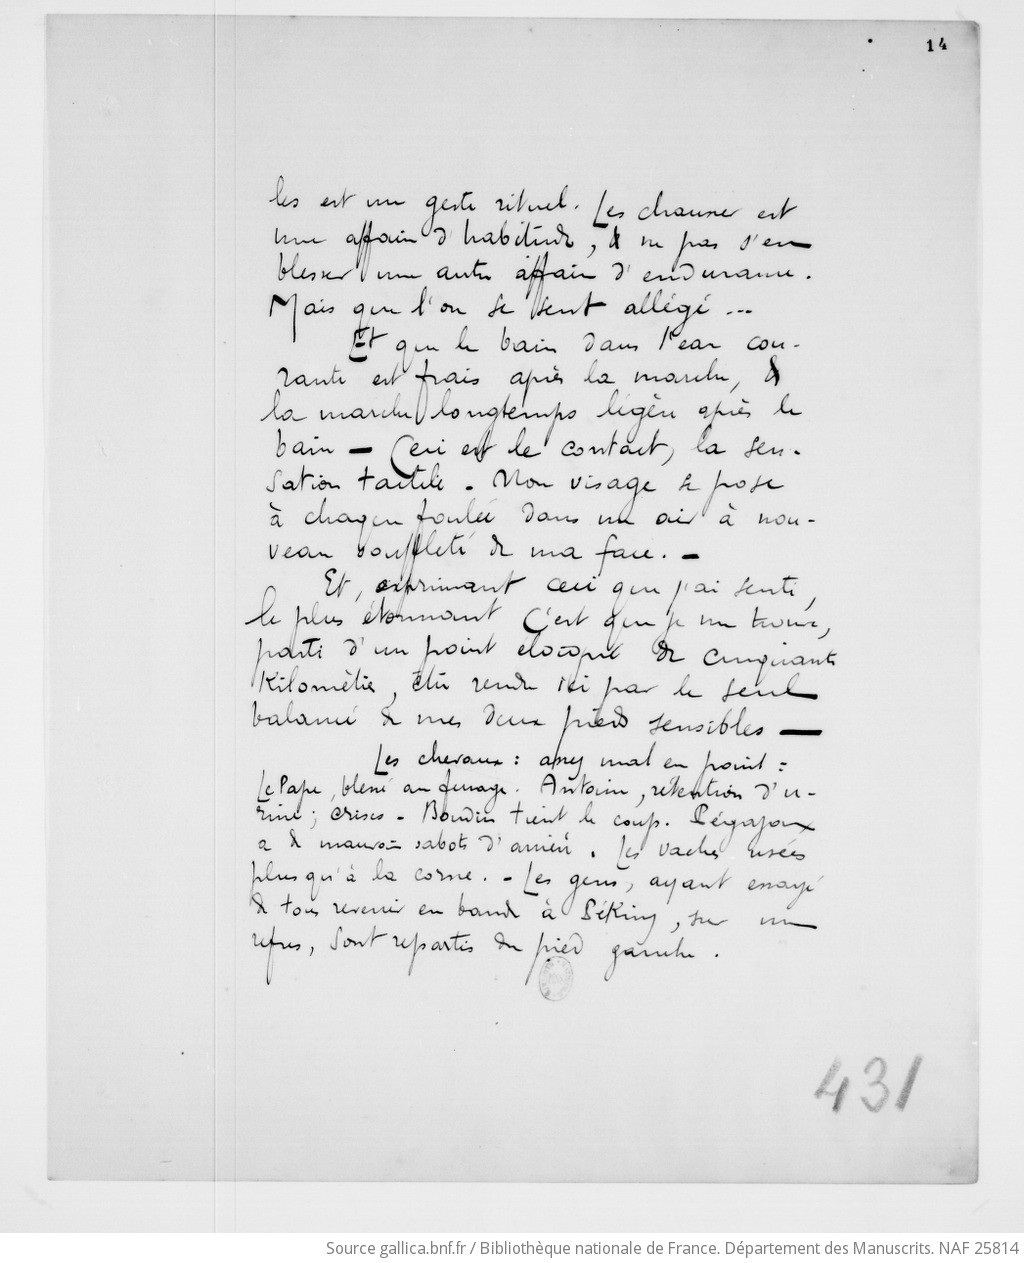 14
les est un geste rituel. Les chausser est
une affaire d'habitude, & ne pas s'en
blesser une autre affaire d'endurance.
Mais que l'on se sent allégé ...
Et que le bain dans l'eau cou-
rante est frais après la marche, &
la marche longtemps légère après le
bain — Ceci est le contact, la sen-
sation tactile. Mon visage se pose
à chaque foulée dans un air à nou-
veau souffleté de ma face. —
Et, exprimant ceci que j'ai senti,
le plus étonnant c'est que je me trouve,
parti d'un point éloigné de cinquante
Kilomètres, être rendu ici par le seul
balancé de mes deux pieds sensibles —
Les chevaux : assez mal en point :
Le Pape, blessé au ferrage. Antoine, rétention d'u-
rine ; crises - Boudin tient le coup. Pégajoux
a de mauvais sabots d'arrière. Les vaches usées
plus qu'à la corne. - Les gens, ayant essayé
de tous revenir en bande à Péking, sur un
refus, sont repartis du pied gauche.
431
Source gallica.bnf.fr / Bibliothèque nationale de France. Département des Manuscrits. NAF 25814